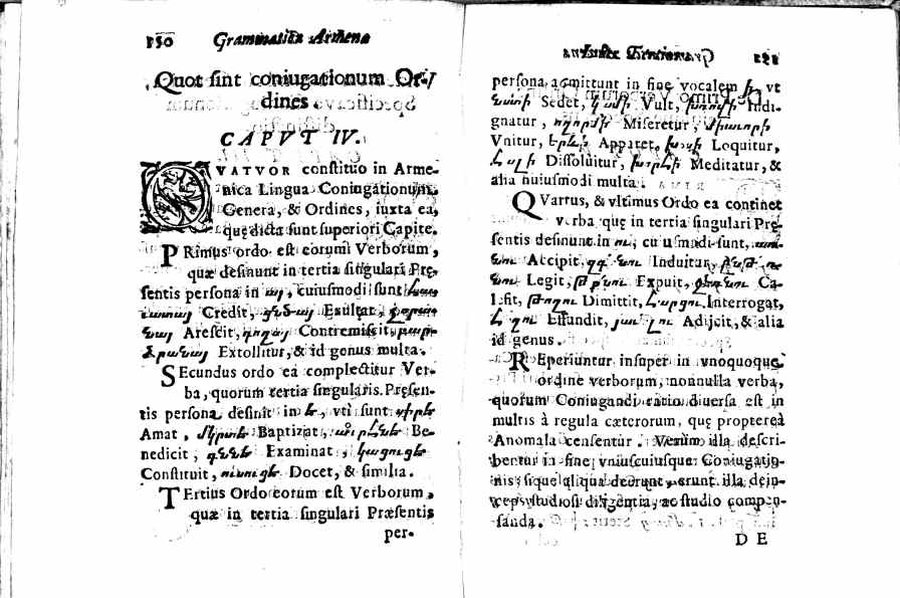 150 Grammaticæ Armenæ
Quot sint coniugationum Or-
dines
CAPVT IV.
QVATVOR constituo in Arme-
nica Lingua Coniugationum
Genera, & Ordines, iuxta ea,
quę dicta sunt superiori Capite.
PRimus ordo est eorum Verborum,
quæ desinunt in tertia singulari Prę-
sentis persona in այ, cuiusmodi sunt հաւ
ատայ Credit, ցնծայ Exultat,
նայ Arescit, դողայ Contremiscit, բար
ձրանայ Extollitur, & id genus multa.
SEcundus ordo ea complectitur Ver-
ba, quorum tertia singularis Pręsen-
tis persona desinit in է, vti sunt սիրէ
Amat, մկրտէ Baptizat, օրհնէ Be-
nedicit, քննէ Examinat, կացուցէ
Constituit, ուսուցէ Docet, & similia.
TErtius Ordo eorum est Verborum,
quæ in tertia singulari Præsentis
per-
151
persona admittunt in fine vocalem ի, vt
նստի Sedet, կամի Vult, Indi-
gnatur, ողորմի Miseretur, միաւորի
Vnitur, երևի Apparet, խօսի Loquitur,
Dissoluitur, խորհի Meditatur, &
alia huiusmodi multa.
QVartus, & vltimus Ordo ea continet
verba quę in tertia singulari Prę-
sentis desinunt in ու, cuiusmodi sunt, առ
նու Accipit, զգենու Induitur,
նու Legit, թքնու Expuit, ջեռնու Ca-
lefit, թողու Dimittit, հարցու Interrogat,
հեղու Effundit, յաւելու Adijcit, & alia
id genus.
REperiuntur insuper in vnoquoque
ordine verborum, nonnulla verba,
quorum Coniugandi ratio diversa est in
multis à regula cæterorum, quę propterea
Anomala censentur. Verùm illa descri-
bentur in fine vniuscuiusque Coniugatio-
nis; sique aliqua deerunt, erunt illa dein-
ceps studiosi diligentia, ac studio compen-
sanda.
D E